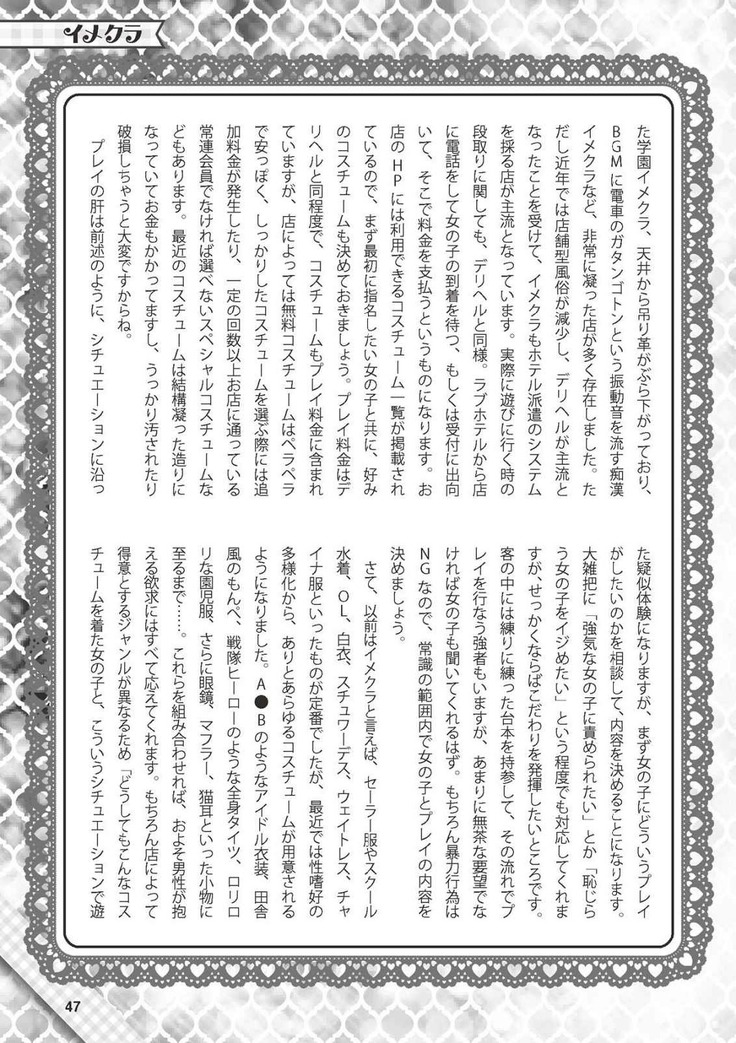 イメクラ
た学園イメクラ、天井から吊り革がぶら下がっており、
BGMに電車のガタンゴトンという振動音を流す痴漢
イメクラなど、非常に凝った店が多く存在しました。た
だし近年では店舗型風俗が減少し、デリヘルが主流と
なったことを受けて、イメクラもホテル派遣のシステム
を採る店が主流となっています。実際に遊びに行く時の
段取りに関しても、デリヘルと同様。ラブホテルから店
に電話をして女の子の到着を待つ、もしくは受付に出向
いて、そこで料金を支払うというものになります。お
店のHPには利用できるコスチューム一覧が掲載され
ているので、まず最初に指名したい女の子と共に、好み
のコスチュームも決めておきましょう。プレイ料金はデ
リヘルと同程度で、コスチュームもプレイ料金に含まれ
ていますが、店によっては無料コスチュームはペラペラ
で安っぽく、しっかりしたコスチュームを選ぶ際には追
加料金が発生したり、一定の回数以上お店に通っている
常連会員でなければ選べないスペシャルコスチュームな
どもあります。最近のコスチュームは結構凝った造りに
なっていてお金もかかってますし、うっかり汚されたり
破損しちゃうと大変ですからね。
プレイの肝は前述のように、シチュエーションに沿っ
た疑似体験になりますが、まず女の子にどういうプレイ
がしたいのかを相談して、内容を決めることになります。
大雑把に「強気な女の子に責められたい」とか「恥じら
う女の子をイジめたい」という程度でも対応してくれま
すが、せっかくならばこだわりを発揮したいところです。
客の中には練りに練った台本を持参して、その流れでプ
レイを行なう強者もいますが、あまりに無茶な要望でな
ければ女の子も聞いてくれるはず。もちろん暴力行為は
NGなので、常識の範囲内で女の子とプレイの内容を
決めましょう。
さて、以前はイメクラと言えば、セーラー服やスクール
水着、OL、白衣、スチュワーデス、ウェイトレス、チャ
イナ服といったものが定番でしたが、最近では性嗜好の
多様化から、ありとあらゆるコスチュームが用意される
ようになりました。A●Bのようなアイドル衣装、田舎
風のもんぺ、戦隊ヒーローのような全身タイツ、ロリロ
リな園児服、さらに眼鏡、マフラー、猫耳といった小物に
至るまで……。これらを組み合わせれば、およそ男性が抱
える欲求にはすべて応えてくれます。もちろん店によって
得意とするジャンルが異なるため『どうしてもこんなコス
チュームを着た女の子と、こういうシチュエーションで遊
47